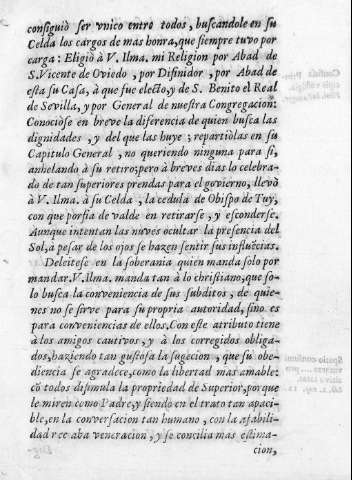 consiguiò ser vnico entre todos, buscandole en su
Celda los cargos de mas honra, que siempre tuvo por
carga: Eligiò à V. Ilma. mi Religion por Abad de
S. Vicente de Oviedo, por Difinidor, por Abad de
esta su Casa, à que fue electo, y de S. Benito el Real
de Sevilla, y por General de nuestra Congregacion:
Conociòse en breve la diferencia de quien busca las
dignidades, y del que las huye; repartiòlas en su
Capitulo General, no queriendo ninguna para sì,
anhelando à su retiro; pero à breves dias lo celebra-
do de tan superiores prendas para el govierno, llevò
à V. Ilma. à su Celda, la cedula de Obispo de Tuy,
con que porfia de valde en retirarse, y esconderse.
Aunque intentan las nuves ocultar la presencia del
Sol, à pesar de los ojos se hazen sentir sus influẽcias.
Deleitese en la soberania quien manda solo por
mandar. V. Ilma. manda tan à lo christiano, que so-
lo busca la conveniencia de sus subditos, de quie-
nes no se sirve para su propria autoridad, sino es
para conveniencias de ellos. Con este atributo tiene
à los amigos cautivos, y à los corregidos obliga-
dos, haziendo tan gustosa la sugecion, que su obe-
diencia se agradece, como la libertad mas amable:
cõ todos disimula la propriedad de Superior, porque
le miren como Padre, y siendo en el trato tan apaci-
ble, en la conversacion tan humano, con la afabili-
dad recaba veneracion, y se concilia mas estima-
cion,